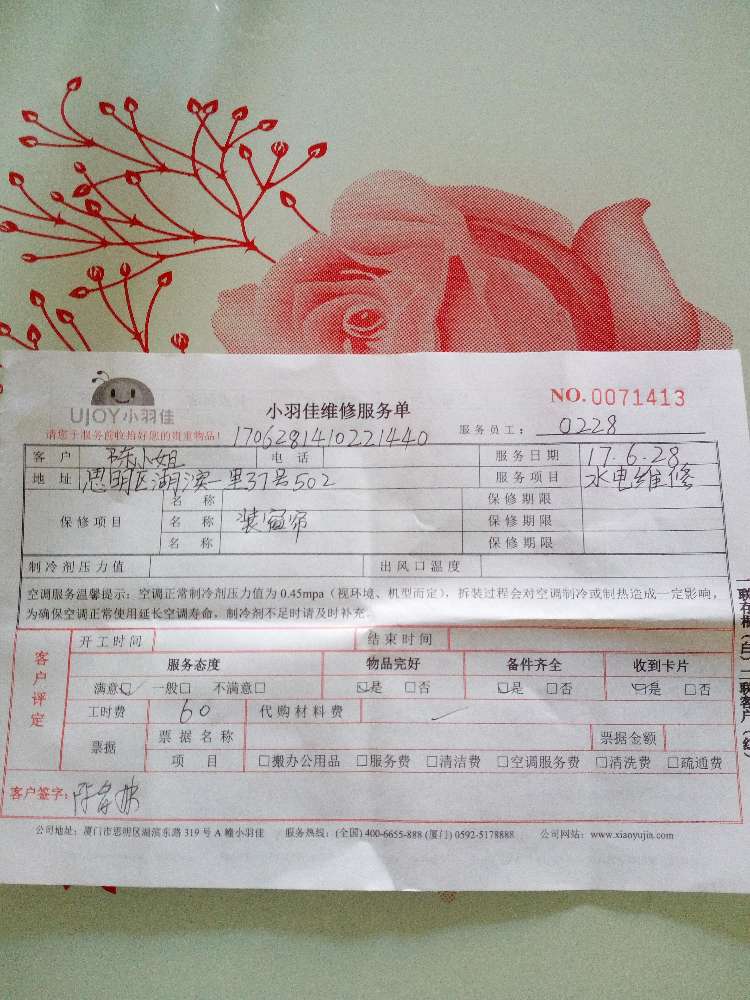 UJOY小羽佳
小羽佳维修服务单
NO.0071413
请您于服务前收拾好您的贵重物品!
1706281410221440
服务员工: 0228
客户 陈小姐 电话 服务日期 17.6.28
地址 思明区湖滨一里37号502 服务项目 水电维修
保修项目
名称 保修期限
名称 装窗帘 保修期限
名称 保修期限
制冷剂压力值 出风口温度
空调服务温馨提示:空调正常制冷剂压力值为0.45mpa(视环境、机型而定),拆装过程会对空调制冷或制热造成一定影响,
为确保空调正常使用延长空调寿命,制冷剂不足时请及时补充。
客户评定
开工时间 结束时间
服务态度 物品完好 备件齐全 收到卡片
满意□✓ 一般□ 不满意□ □是 □否 □是 □否 □是 □否
工时费 60 代购材料费
票据
票据名称 票据金额
项目 □搬办公用品 □服务费 □清洁费 □空调服务费 □清洗费 □疏通费
客户签字:
公司地址:厦门市思明区湖滨东路319号A幢小羽佳 服务热线:(全国)400-6655-888 (厦门)0592-5178888 公司网站:www.xiaoyujia.com
联存根(白)二联客户(红)